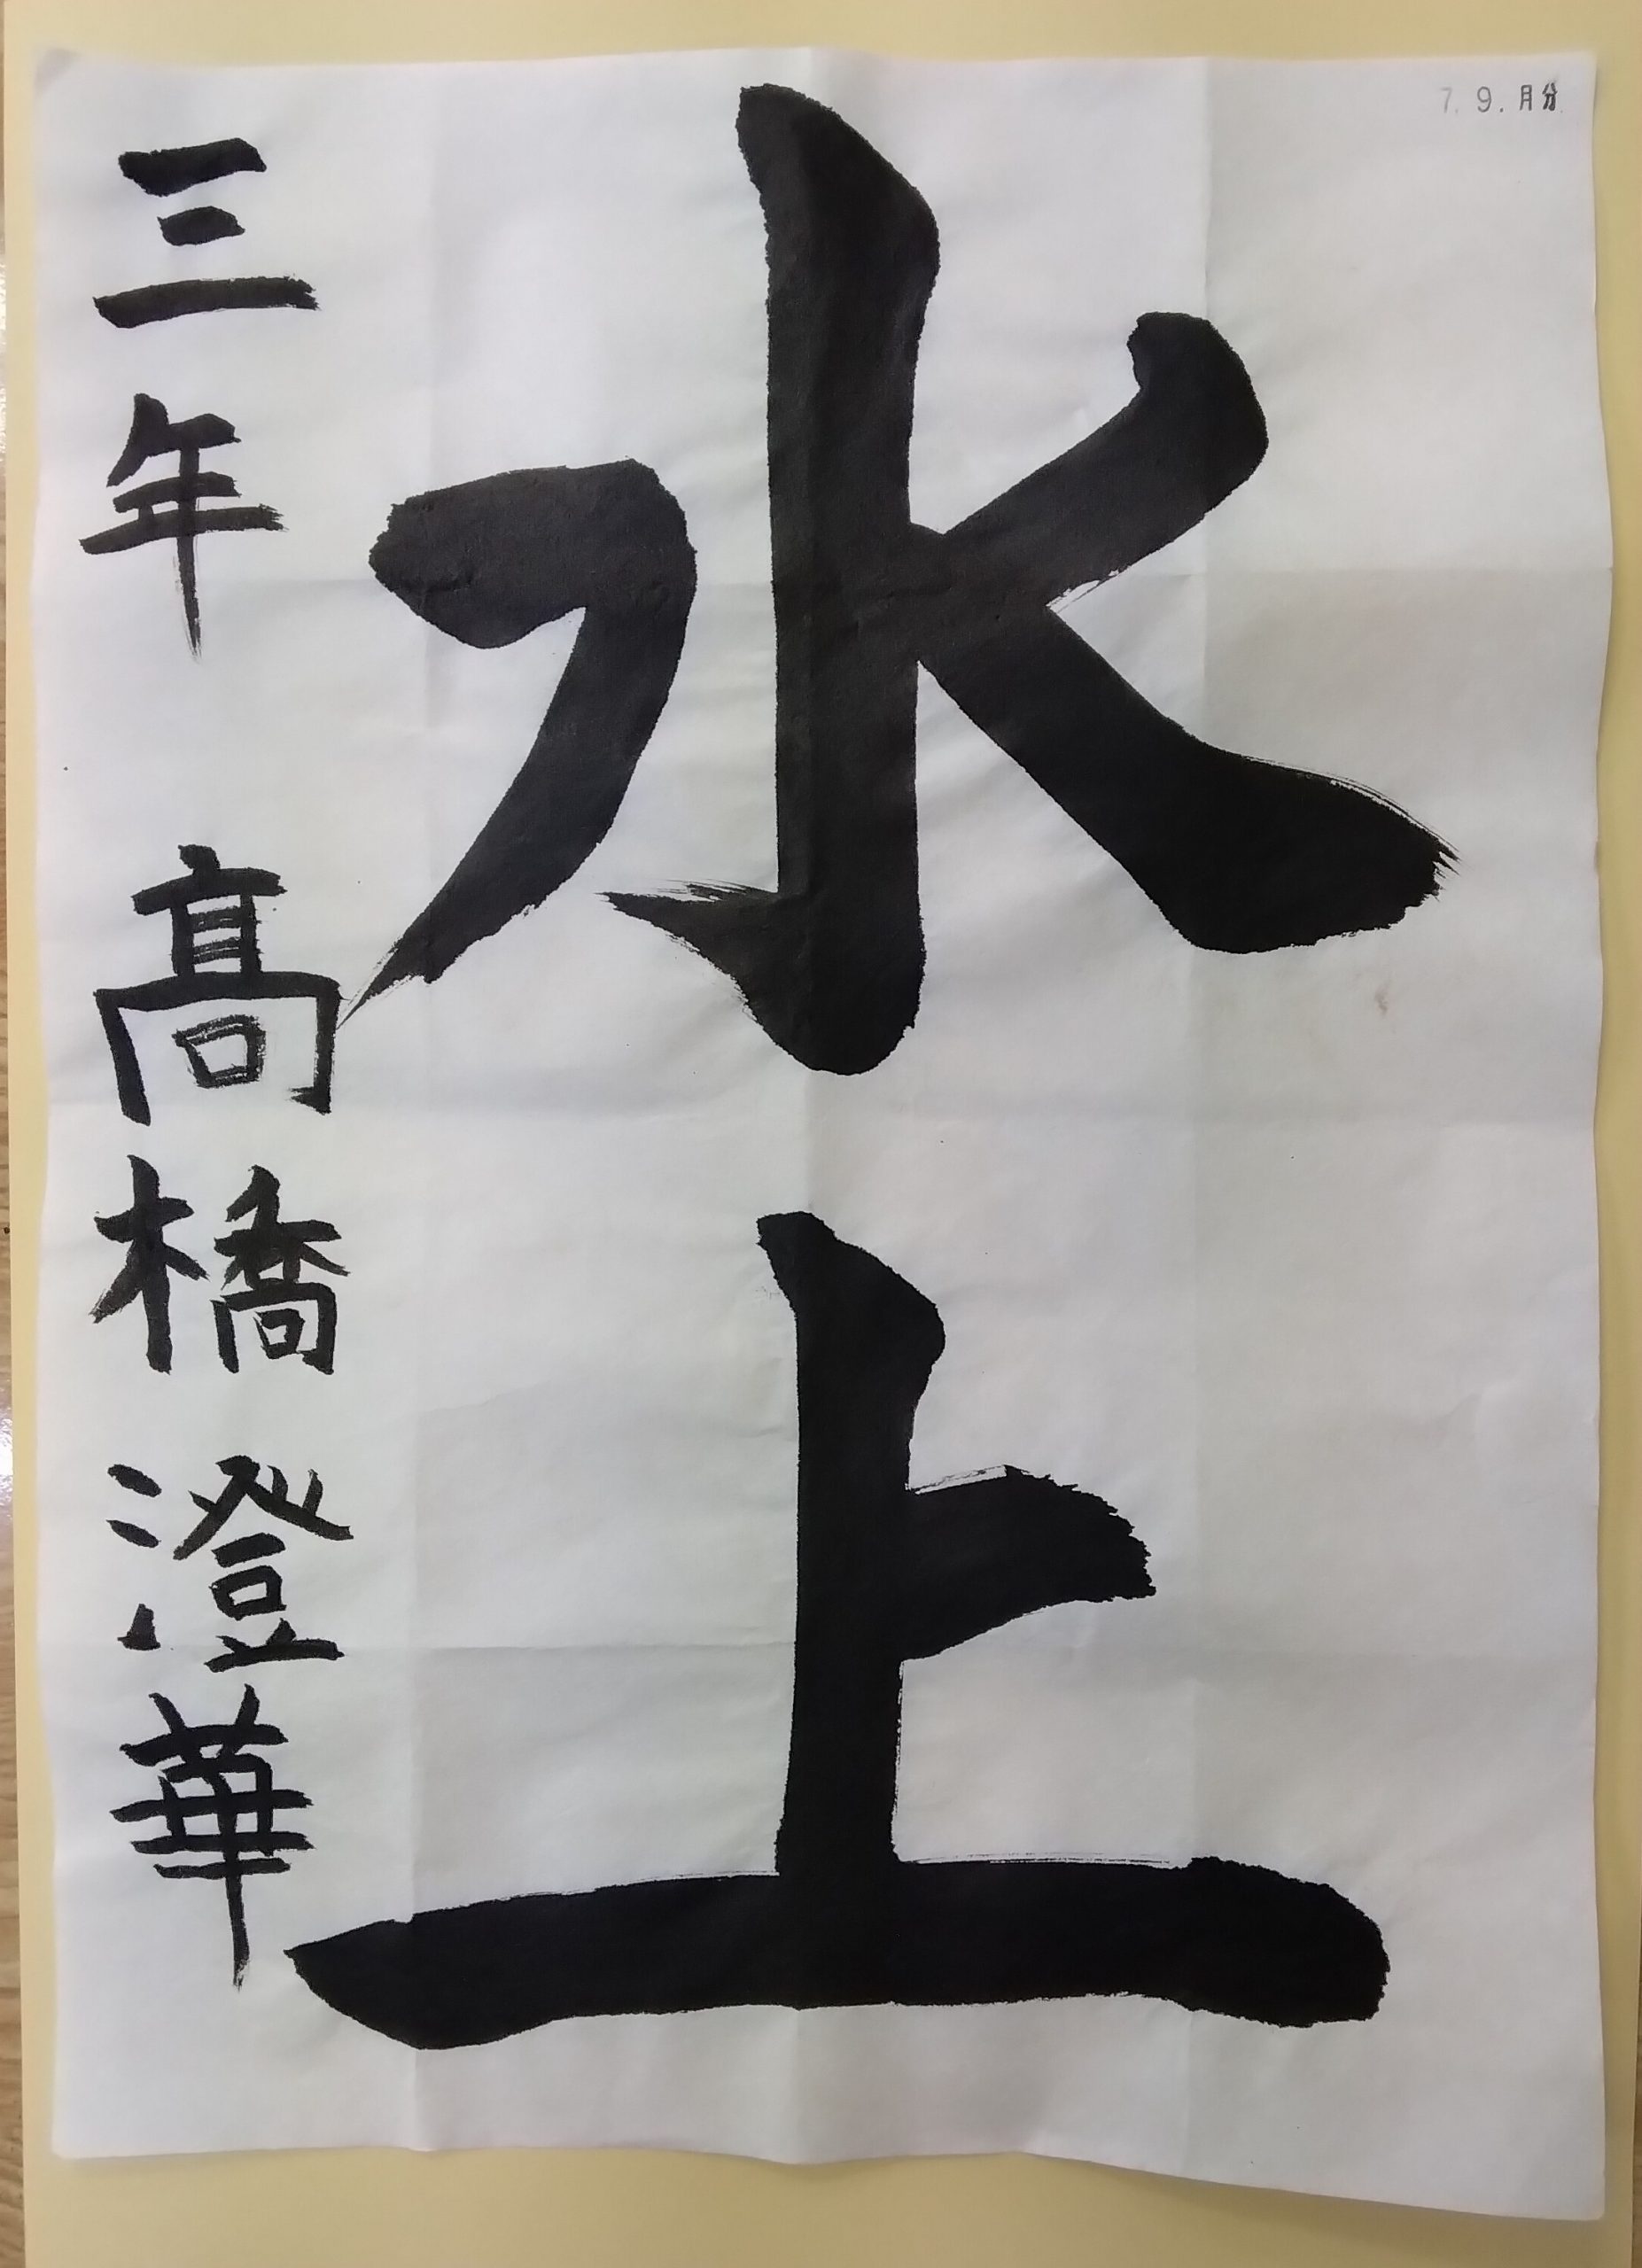 7.9.月分
水上
三年 髙橋澄華